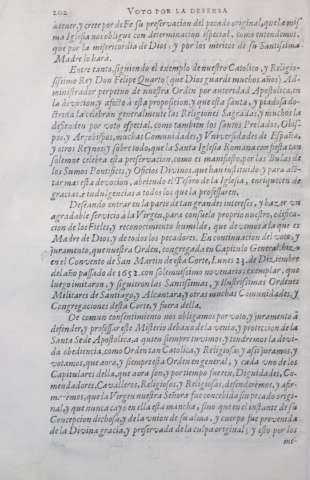 202 VOTO POR LA DEFENSA
a tener, y creer por de Fe su preservacion del pecado original, que la mis
ma Iglesia nos obligue con determinacion especial, como entendemos,
que por la misericordia de Dios, y por los meritos de su Santissima
Madre lo harà.
Entre tanto, siguiendo el exemplo de nuestro Catolico, y Religio-
sissimo Rey Don Felipe Quarto (que Dios guarde muchos años) Ad-
ministrador perpetuo de nuestra Orden por autoridad Apostolica, en
la devocion, y afecto à esta proposicion, y que esta santa, y piadosa do-
ctrina la celebran generalmente las Religiones Sagradas, y muchos la
defienden por voto especial, como tambien los santos Prelados, Obis-
pos, y Arçobispos, muchas Comunidades, y Universidades de España,
y otros Reynos; y sobre todo, que la Santa Iglesia Romana con fiesta tan
solemne celebra esta preservacion, como es manifiesto, por las Bulas de
los Sumos Pontifices, y Oficios Divinos, que han instituido, y para alen-
tar mas esta devocion, abriendo el Tesoro de la Iglesia, enriquecen de
gracias, è indulgencias à todos los que la professaren.
Deseando entrar en la parte de tan grandes interesses, y hazer un
agradable servicio à la Virgen, para consuelo proprio nuestro, edifica-
cion de los Fieles, y reconocimiento humilde, que devemos à la que es
Madre de Dios, y de todos los pecadores. En continuacion del voto, y
juramento, que nuestra Orden, congregada en Capitulo General, hizo
en el Convento de San Martin de esta Corte, Lunes 23. de Diziembre
del año passado de 1652. con solemnissimo novenario, exemplar, que
luego imitaron, y siguieron las Santissimas, y Ilustrissimas Ordenes
Militares de Santiago, y Alcantara, y otras muchas Comunidades, y
Congregaciones desta Corte, y fuera della.
De comun consentimiento nos obligamos por voto, y juramento à
defender, y professar este Misterio debaxo de la venia, y proteccion de la
Santa Sede Apostolica, à quien siempre tuvimos, y tendremos la devi-
da obediencia, como Orden tan Catolica, y Religiosa; y assi juramos, y
votamos, que aora, y siempre esta Orden en general, y cada uno de los
Capitulares della, que aora son, y por tiempo fueren, Dignidades, Co-
mendadores, Cavalleros, Religiosos, y Religiosas, defenderèmos, y afir-
maremos, que la Virgen nuestra Señora fue concebida sin pecado origi-
nal, y que nunca cayò en ella esta mancha, sino que en el instante de su
Concepcion dichosa, y de la union de su alma, y cuerpo fue prevenida
de la Divina gracia, y preservada de la culpa original; y esto por los
me-